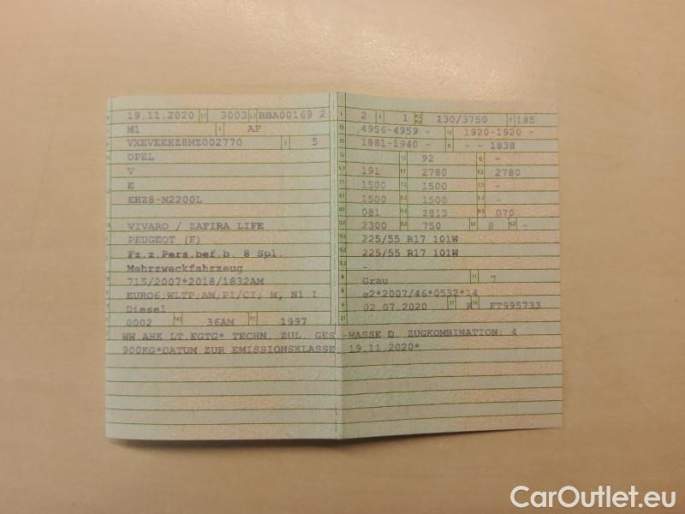 19.11.2020 3003 BBA00169 2
M1 AF
5
OPEL
V
E
EHZ8-N2200L
VIVARO / ZAFIRA LIFE
PEUGEOT (F)
Fz.z.Pers.bef.b. 8 Spl.
Mehrzweckfahrzeug
715/2007*2018/1832AM
EURO6 WLTP AM, PI/CI, M, N1 I
Diesel
0002 36AM 1997
WW AHK LT.EGTG* TECHN. ZUL. GES.-MASSE D. ZUGKOMBINATION: 4
900KG*DATUM ZUR EMISSIONSKLASSE: 19.11.2020*
2 1 130/3750 185
4956-4959 - 1920-1920 -
1881-1940 - - - 1838
92 -
191 2780 2780
1500 1500 -
1500 1500 -
081 2813 070
2300 750 8 -
225/55 R17 101W
225/55 R17 101W
-
Grau 7
e2*2007/46*0532*14
02.07.2020 K FT995733
CarOutlet.eu